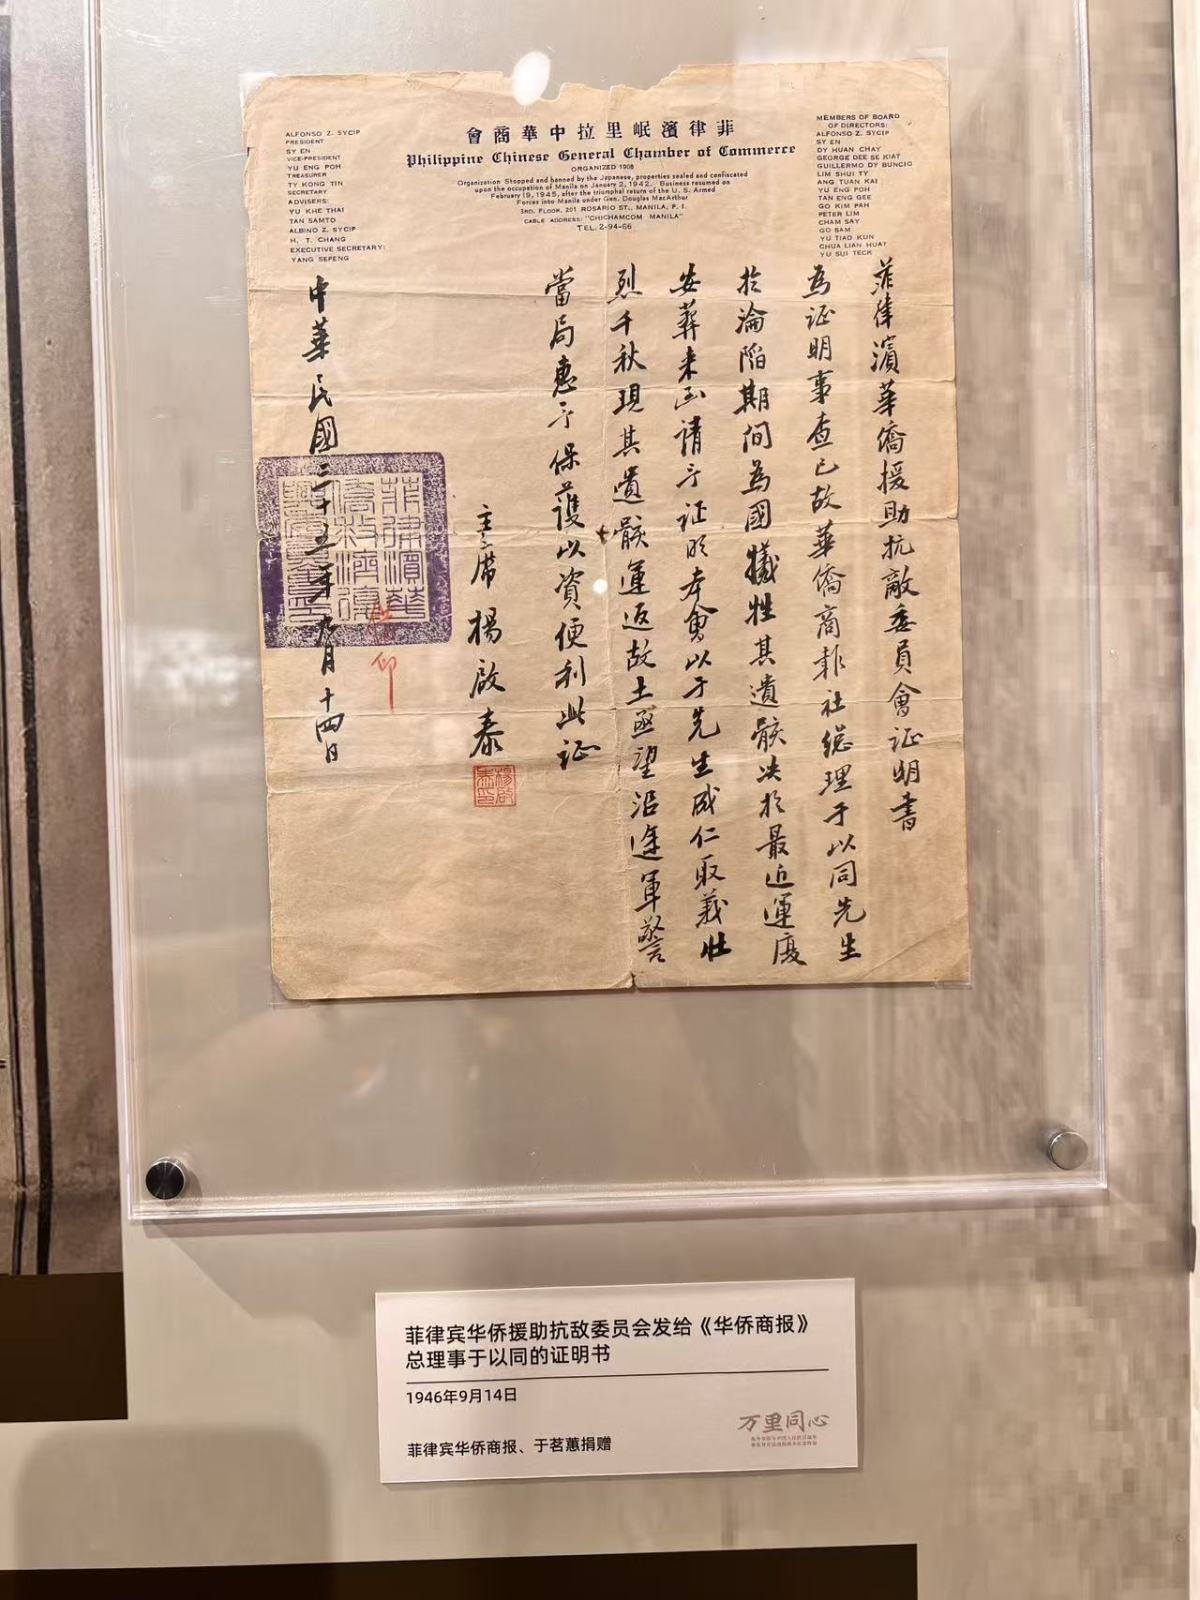 ALFONSO Z. SYCIP
PRESIDENT
SY EN
VICE-PRESIDENT
YU ENG POH
TREASURER
TY KONG TIN
SECRETARY
ADVISERS:
YU KHE THAI
TAN SAMTO
ALBINO Z. SYCIP
H. T. CHANG
EXECUTIVE SECRETARY:
YANG SEPENG
會商華中拉里岷濱律菲
Philippine Chinese General Chamber of Commerce
ORGANIZED 1908
Organization Stopped and banned by the Japanese, properties sealed and confiscated
upon the occupation of Manila on January 2, 1942. Business resumed on
February 19, 1945, after the triumphal return of the U. S. Armed
Forces into Manila under Gen. Douglas MacArthur
3RD. FLOOR, 201 ROSARIO ST., MANILA, P. I.
CABLE ADDRESS: "CHICHAMCOM MANILA"
TEL. 2-94-66
MEMBERS OF BOARD
OF DIRECTORS:
ALFONSO Z. SYCIP
SY EN
DY HUAN CHAY
GEORGE DEE SE KIAT
GUILLERMO DY BUNCIO
LIM SHUI TY
ANG TUAN KAI
YU ENG POH
TAN ENG GEE
GO KIM PAH
PETER LIM
CHAM SAY
GO SAM
YU TIAO KUN
CHUA LIAN HUAT
YU SUI TECK
菲律濱華僑援助抗敵委員會证明書
為证明事查已故華僑商報社總理于以同先生
於淪陷期間為國犧牲其遺骸决於最近運廈
安葬来函請予证明本會以于先生成仁取義壯
烈千秋現其遺骸運返故土亟望沿途軍警
當局惠予保護以資便利此证
主席楊啟泰
楊啟泰印
中華民國三十五年九月十四日
菲律宾华侨援助抗敌委员会发给《华侨商报》
总理事于以同的证明书
1946年9月14日
菲律宾华侨商报、于茗蕙捐赠
万里同心